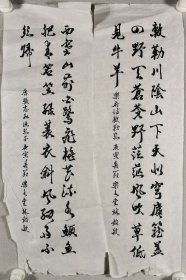 敕勒川陰山下天似穹廬籠蓋
四野天蒼蒼野茫茫風吹草低
見牛羊
樂府詩敕勒歌
西塞山前白鷺飛桃花流水鱖魚
肥青箬笠綠蓑衣斜風細雨不
須歸
唐張志和漁歌子